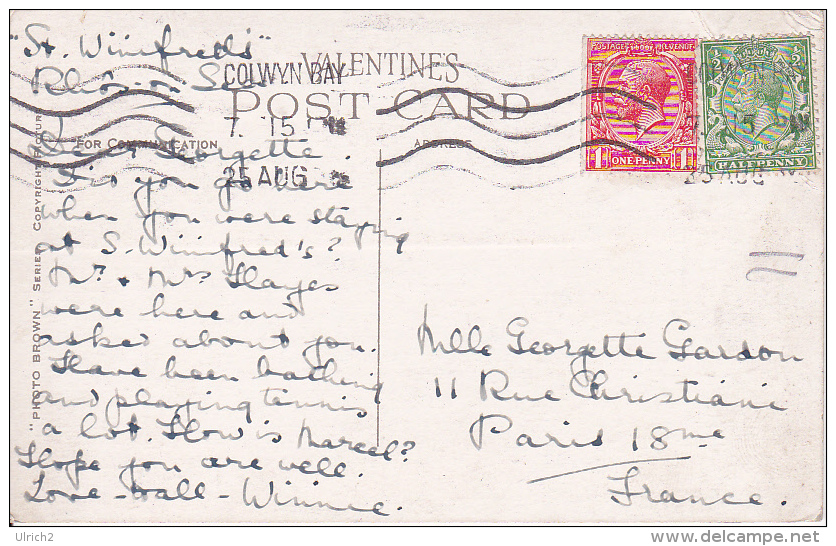 "St. Winifred's"
Rhos-on-Sea
VALENTINE'S
POST CARD
COLWYN BAY
7. 15 PM
25 AUG
FOR COMMUNICATION
ADDRESS
POSTAGE REVENUE
ONE PENNY
HALFPENNY
"PHOTO BROWN" SERIES. COPYRIGHT PICTURE
Dear Georgette.
Did you go here
when you were staying
at S. Winifred's?
Mr. & Mrs Hayes
were here and
asked about you.
Have been bathing
and playing tennis
a lot. How is Marcel?
Hope you are well.
Love - to all - Winnie.
Mlle Georgette Gardon
11 Rue Christiani
Paris 18me
France.
11
Ulrich2
delcampe.net